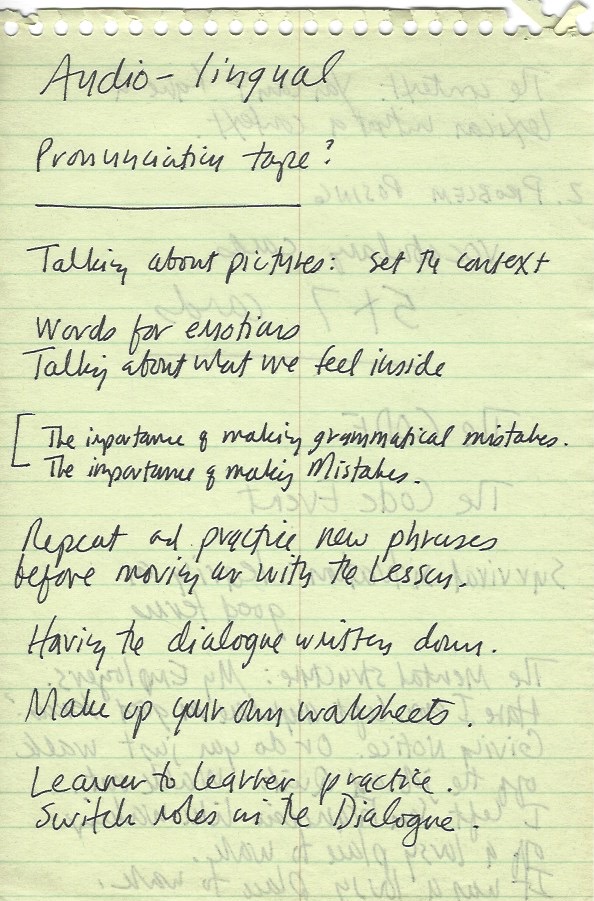 Audio-lingual
Pronunciation tape?
Talking about pictures: set the context
Words for emotions
Talking about what we feel inside
[ The importance of making grammatical mistakes.
The importance of making Mistakes.
Repeat and practice new phrases
before moving on with the Lesson.
Having the dialogue written down.
Make up your own worksheets.
Learner to learner practice.
Switch roles in the Dialogue.